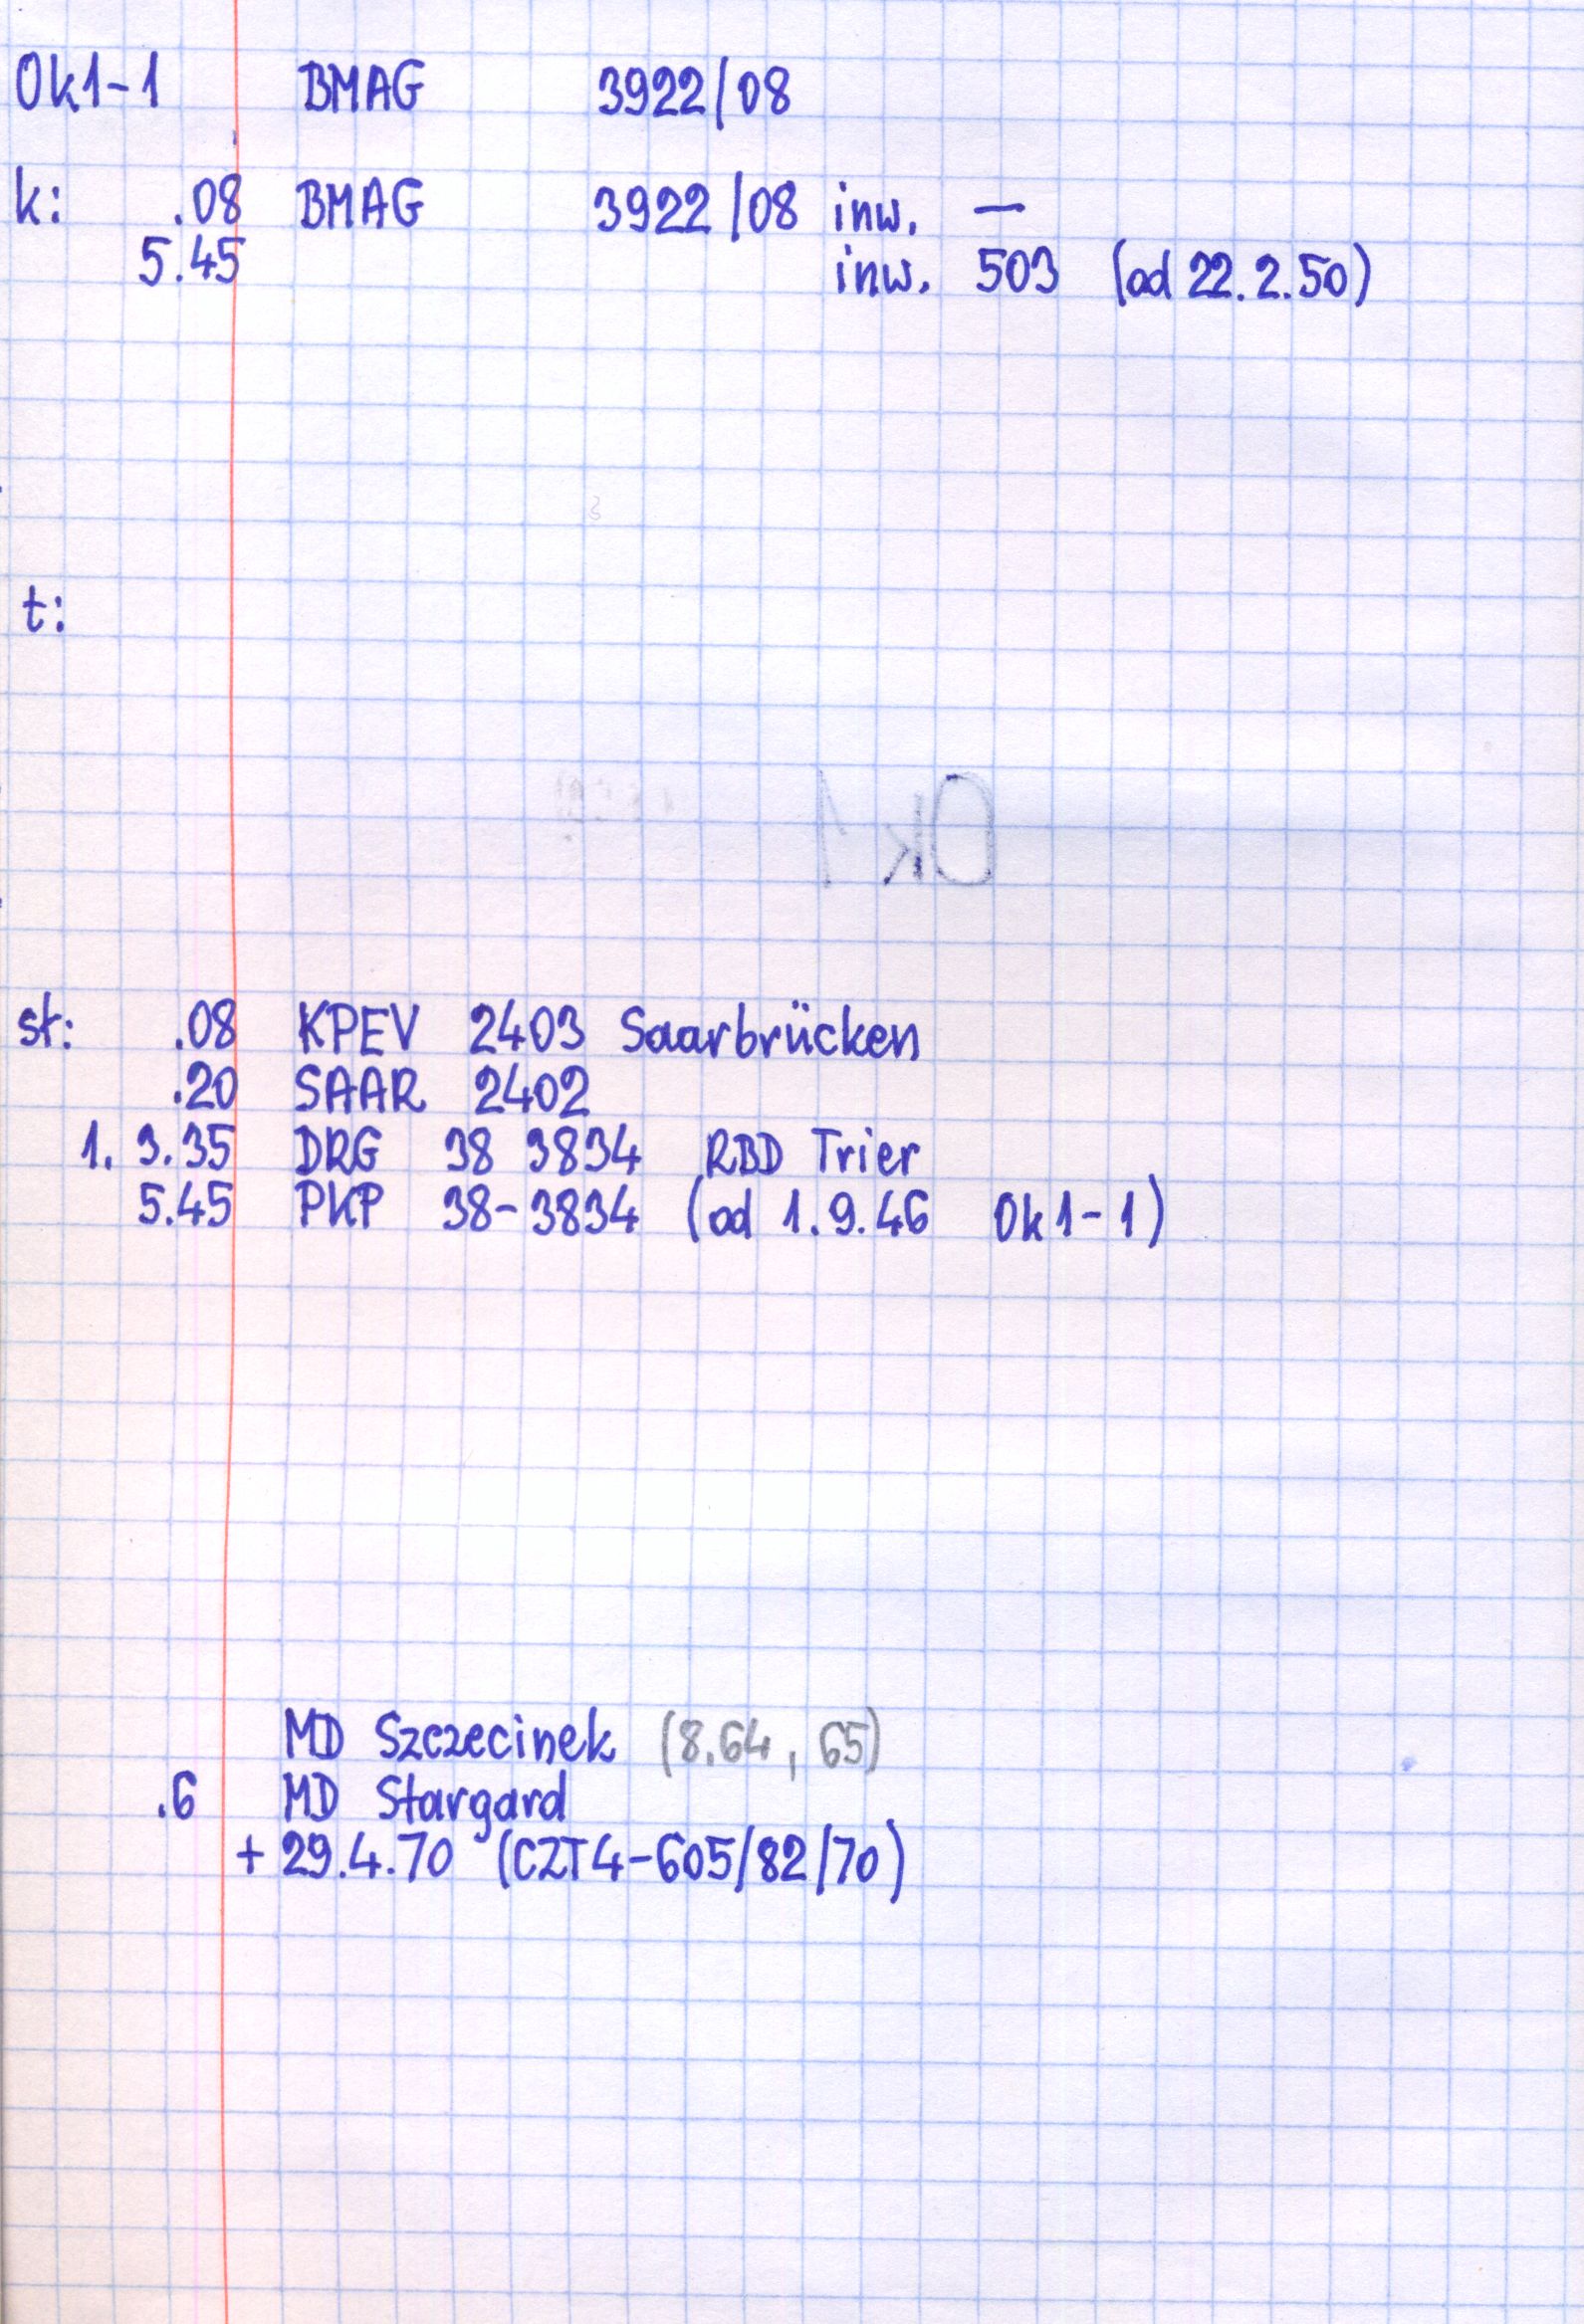 Ok1-1 BMAG 3922/08
k: .08 BMAG 3922/08 inw. —
5.45 inw. 503 (od 22.2.50)
t:
Ok 1
st: .08 KPEV 2403 Saarbrücken
.20 SAAR 2402
1. 3.35 DRG 38 3834 RBD Trier
5.45 PKP 38-3834 (od 1.9.46 Ok1-1)
MD Szczecinek (8.64, 65)
.6 MD Stargard
+ 29.4.70 (CZT4-605/82/70)